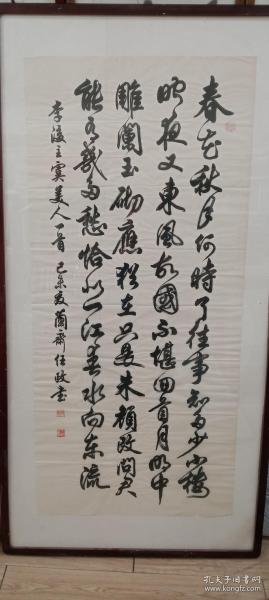 春花秋月何時了往事知多少小樓
昨夜又東風故國不堪回首月明中
雕闌玉砌應猶在只是朱顏改問君
能有幾多愁恰似一江春水向東流
李後主虞美人一首 己未夏蘭齋任政書
孔夫子旧书网